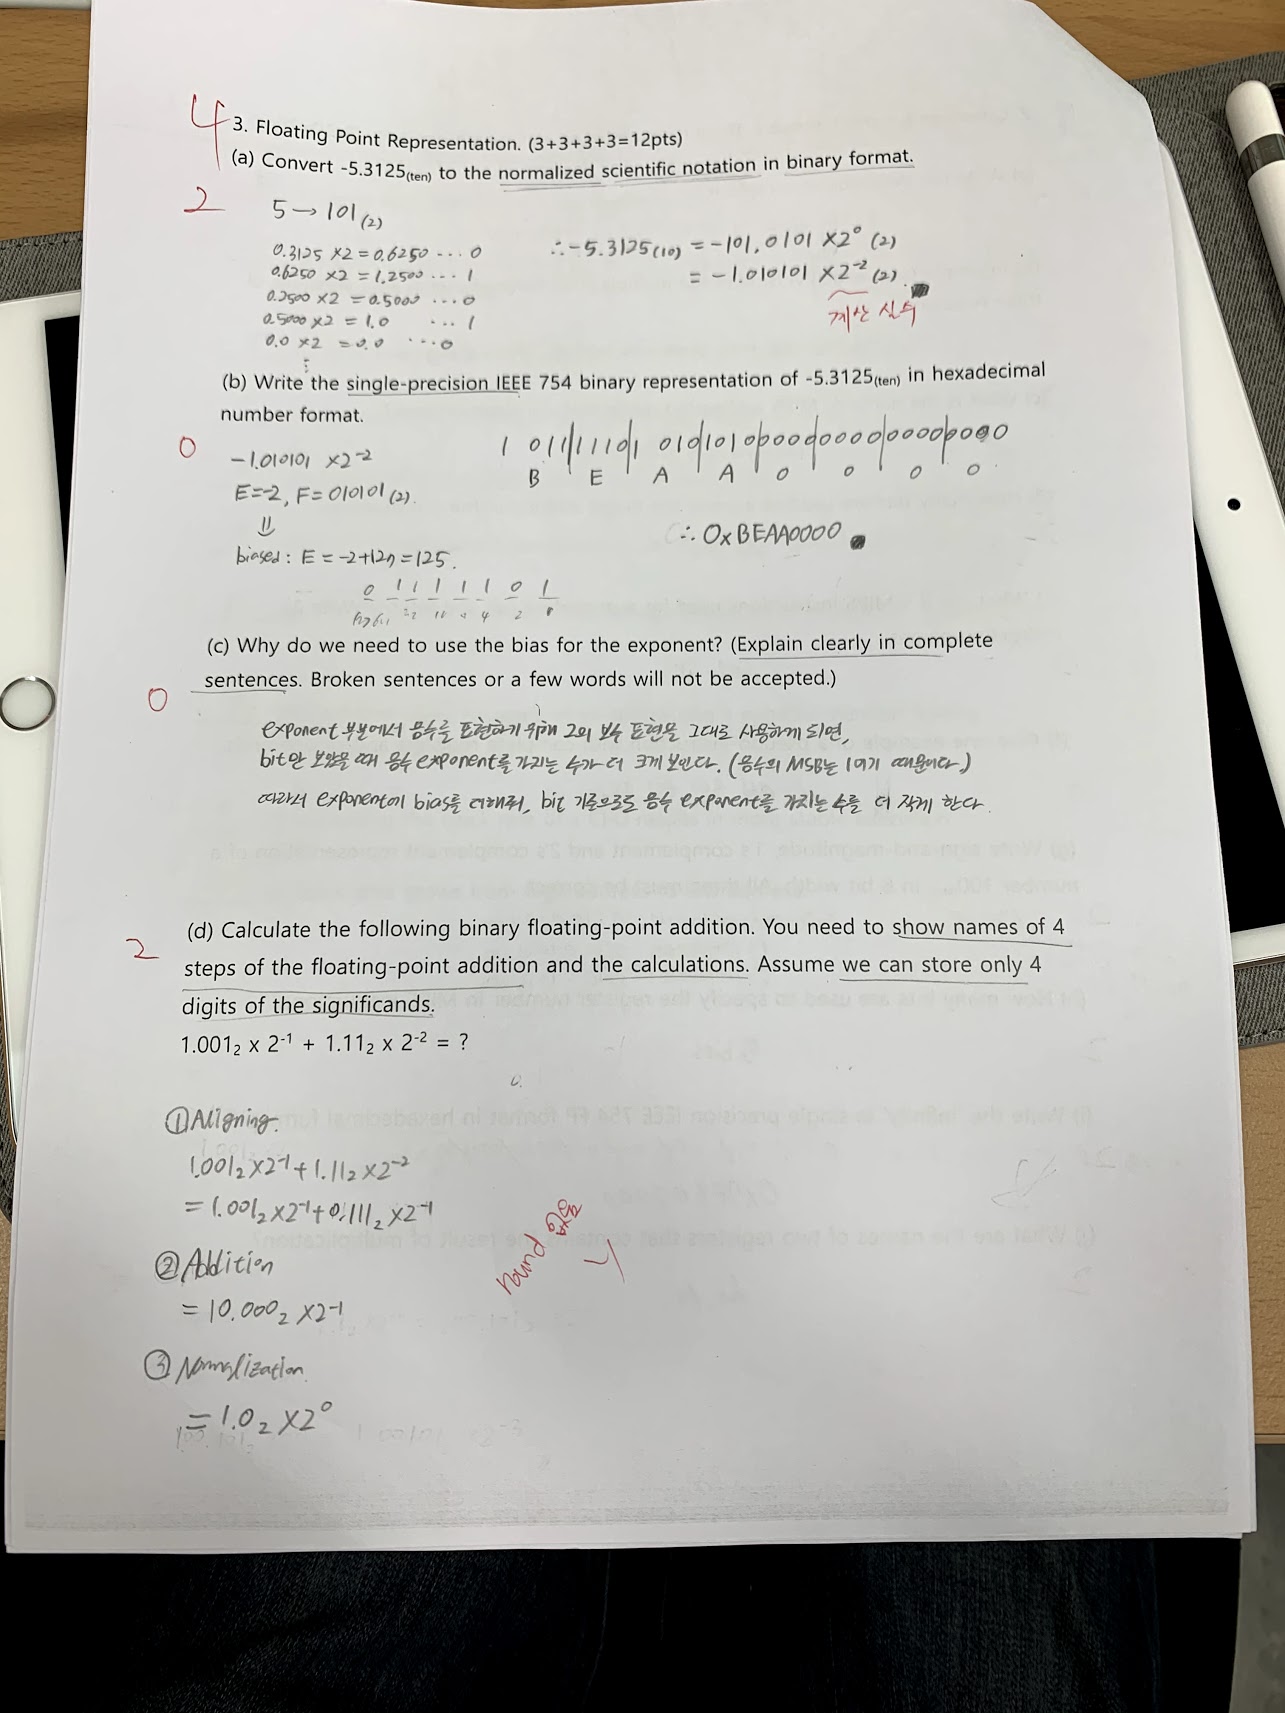 4
3. Floating Point Representation. (3+3+3+3=12pts)
(a) Convert -5.3125(ten) to the normalized scientific notation in binary format.
2
5 → 101 (2)
0.3125 ×2 = 0.6250 ··· 0
0.6250 ×2 = 1.2500 ··· 1
0.2500 ×2 = 0.5000 ··· 0
0.5000 ×2 = 1.0 ··· 1
0.0 ×2 = 0.0 ··· 0
∴ -5.3125(10) = -101.0101 ×2⁰ (2)
= -1.010101 ×2⁻² (2).
계산 실수
(b) Write the single-precision IEEE 754 binary representation of -5.3125(ten) in hexadecimal
number format.
0
-1.010101 ×2⁻²
E=-2, F= 010101 (2).
biased : E = -2+127 = 125.
0 1 1 1 1 1 0 1
1 011|1110|1 010|1010|0000|0000|0000|0000
B E A A 0 0 0 0
∴ 0xBEAA0000
(c) Why do we need to use the bias for the exponent? (Explain clearly in complete
sentences. Broken sentences or a few words will not be accepted.)
0
exponent 부분에서 음수를 표현하기 위해 2의 보수 표현을 그대로 사용하게 되면,
bit만 보았을 때 음수 exponent를 가지는 수가 더 크게 보인다. (음수의 MSB는 1이기 때문이다.)
따라서 exponent에 bias를 더해줘, bit 기준으로도 음수 exponent를 가지는 수를 더 작게 한다.
2
(d) Calculate the following binary floating-point addition. You need to show names of 4
steps of the floating-point addition and the calculations. Assume we can store only 4
digits of the significands.
1.001₂ x 2⁻¹ + 1.11₂ x 2⁻² = ?
① Aligning.
1.001₂ ×2⁻¹ + 1.11₂ ×2⁻²
= 1.001₂ ×2⁻¹ + 0.111₂ ×2⁻¹
② Addition
= 10.000₂ ×2⁻¹
③ Normalization.
= 1.0₂ ×2⁰
round 없음